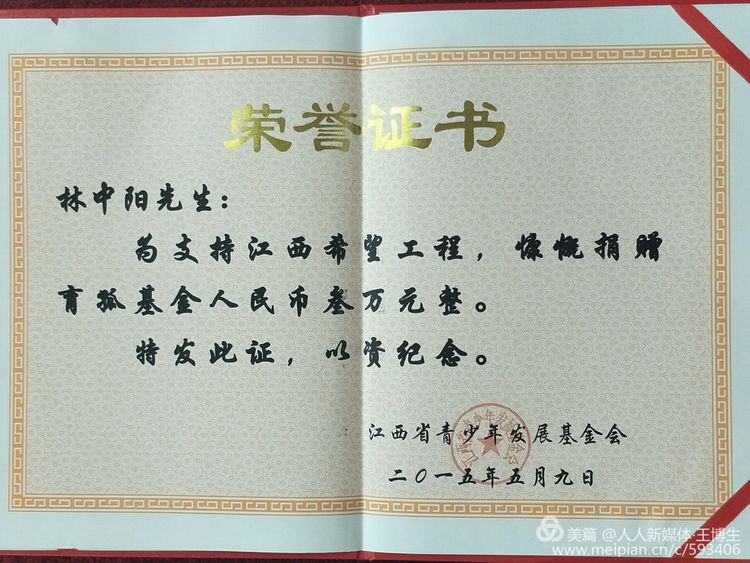 荣誉证书
林中阳先生：
为支持江西希望工程，慷慨捐赠
育孤基金人民币叁万元整。
特发此证，以资纪念。
江西省青少年发展基金会
二〇一五年五月九日
美篇 @人人新媒体·王博生
www.meipian.cn/c/593406